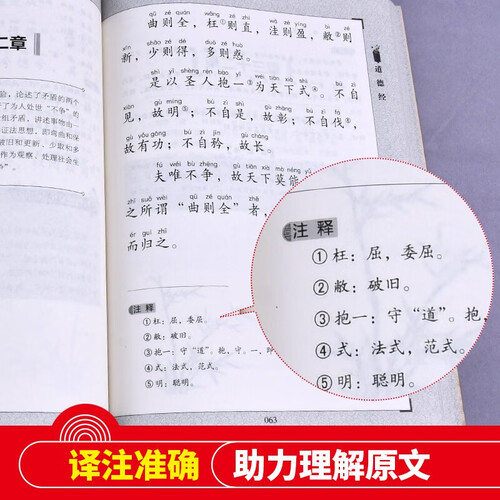 二章
验，论述了矛盾的两个
了为人处世“不争”的
组矛盾，讲述事物由一
证法思想，即弯曲和保
破旧和更新、少取和多
作为观察、处理社会生
争”。
道德经
qū zé quán wǎng zé zhí wā zé yíng bì zé
曲则全，枉①则直，洼则盈，敝②则
xīn shǎo zé dé duō zé huò
新，少则得，多则惑。
shì yǐ shèng rén bào yī wéi tiān xià shì bú zì
是以圣人抱一③为天下式④。不自
xiàn gù míng bú zì shì gù zhāng bú zì fá
见，故明⑤；不自是，故彰；不自伐，
gù yǒu gōng bú zì jīn gù cháng
故有功；不自矜，故长。
fú wéi bù zhēng gù tiān xià mò néng
夫唯不争，故天下莫能
zhī suǒ wèi qū zé quán zhě
之所谓“曲则全”者，
ér guī zhī
而归之。
注释
①枉：屈，委屈。
②敝：破旧。
③抱一：守“道”。抱，守。一，即
④式：法式，范式。
⑤明：聪明。
063
注释
①枉：屈，委屈。
②敝：破旧。
③抱一：守“道”。抱，
④式：法式，范式。
⑤明：聪明。
译注准确 助力理解原文